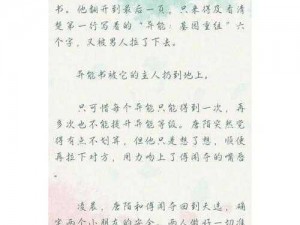 书。他翻开到最后一页，只来得及看清
楚第一行写着的“异能：基因重组”六
个字，又被男人拉了下去。
异能书被它的主人扔到地上。
只可惜每个异能只能得到一次，再
多次也不能提升异能等级。唐陌突然觉
得有点不划算。但他只是想了想，顺便
再拉下对方，用力吻上了傅闻夺的嘴唇
。
凌晨，唐陌和傅闻夺回到天选，确
定两个小朋友的安全。两人做好一切准